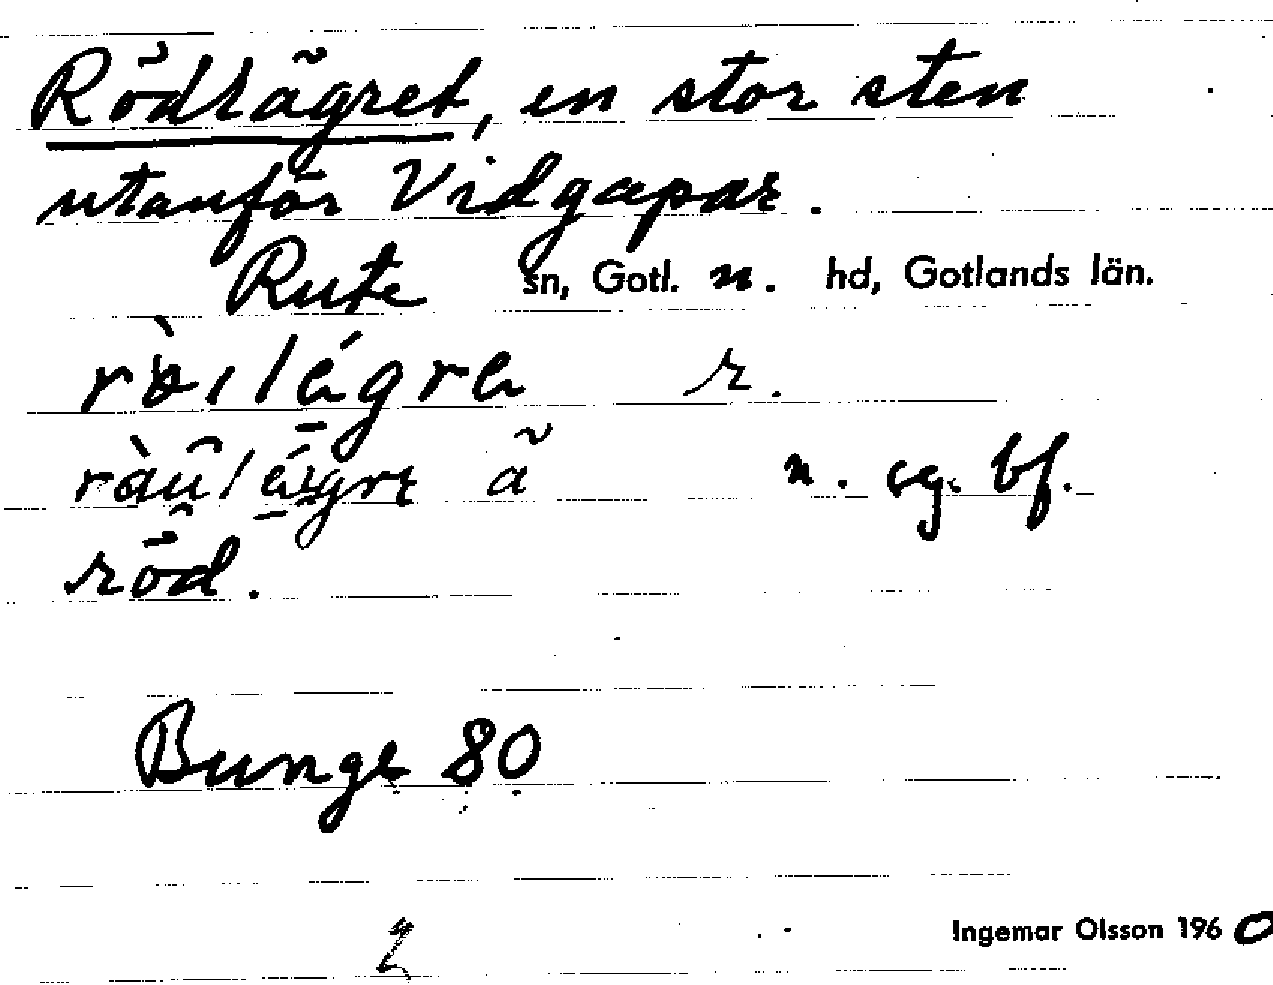 Rödlägret, en stor sten
utanför Vidgapar.
Rute sn, Gotl. n. hd, Gotlands län.
r.
n. sg. bf.
röd.
Bunge 80
Ingemar Olsson 1960